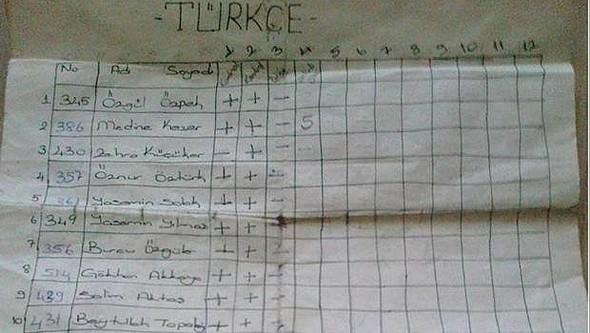 -TÜRKÇE-
1 2 3 4 5 6 7 8 9 10 11 12
No Adı Soyadı
1 345 Özgül Özpek + + -
2 386 Medine Keser + + - 5
3 430 Zehra Küçüker - + -
4 357 Öznur Öztürk + + -
5 361 Yasemin + + -
6 349 Yasemin Yılmaz + + -
7 356 Burcu + + -
8 514 Gökhan Akkaya + + -
9 429 Selim Aktaş + + -
10 431 Beytullah + + -